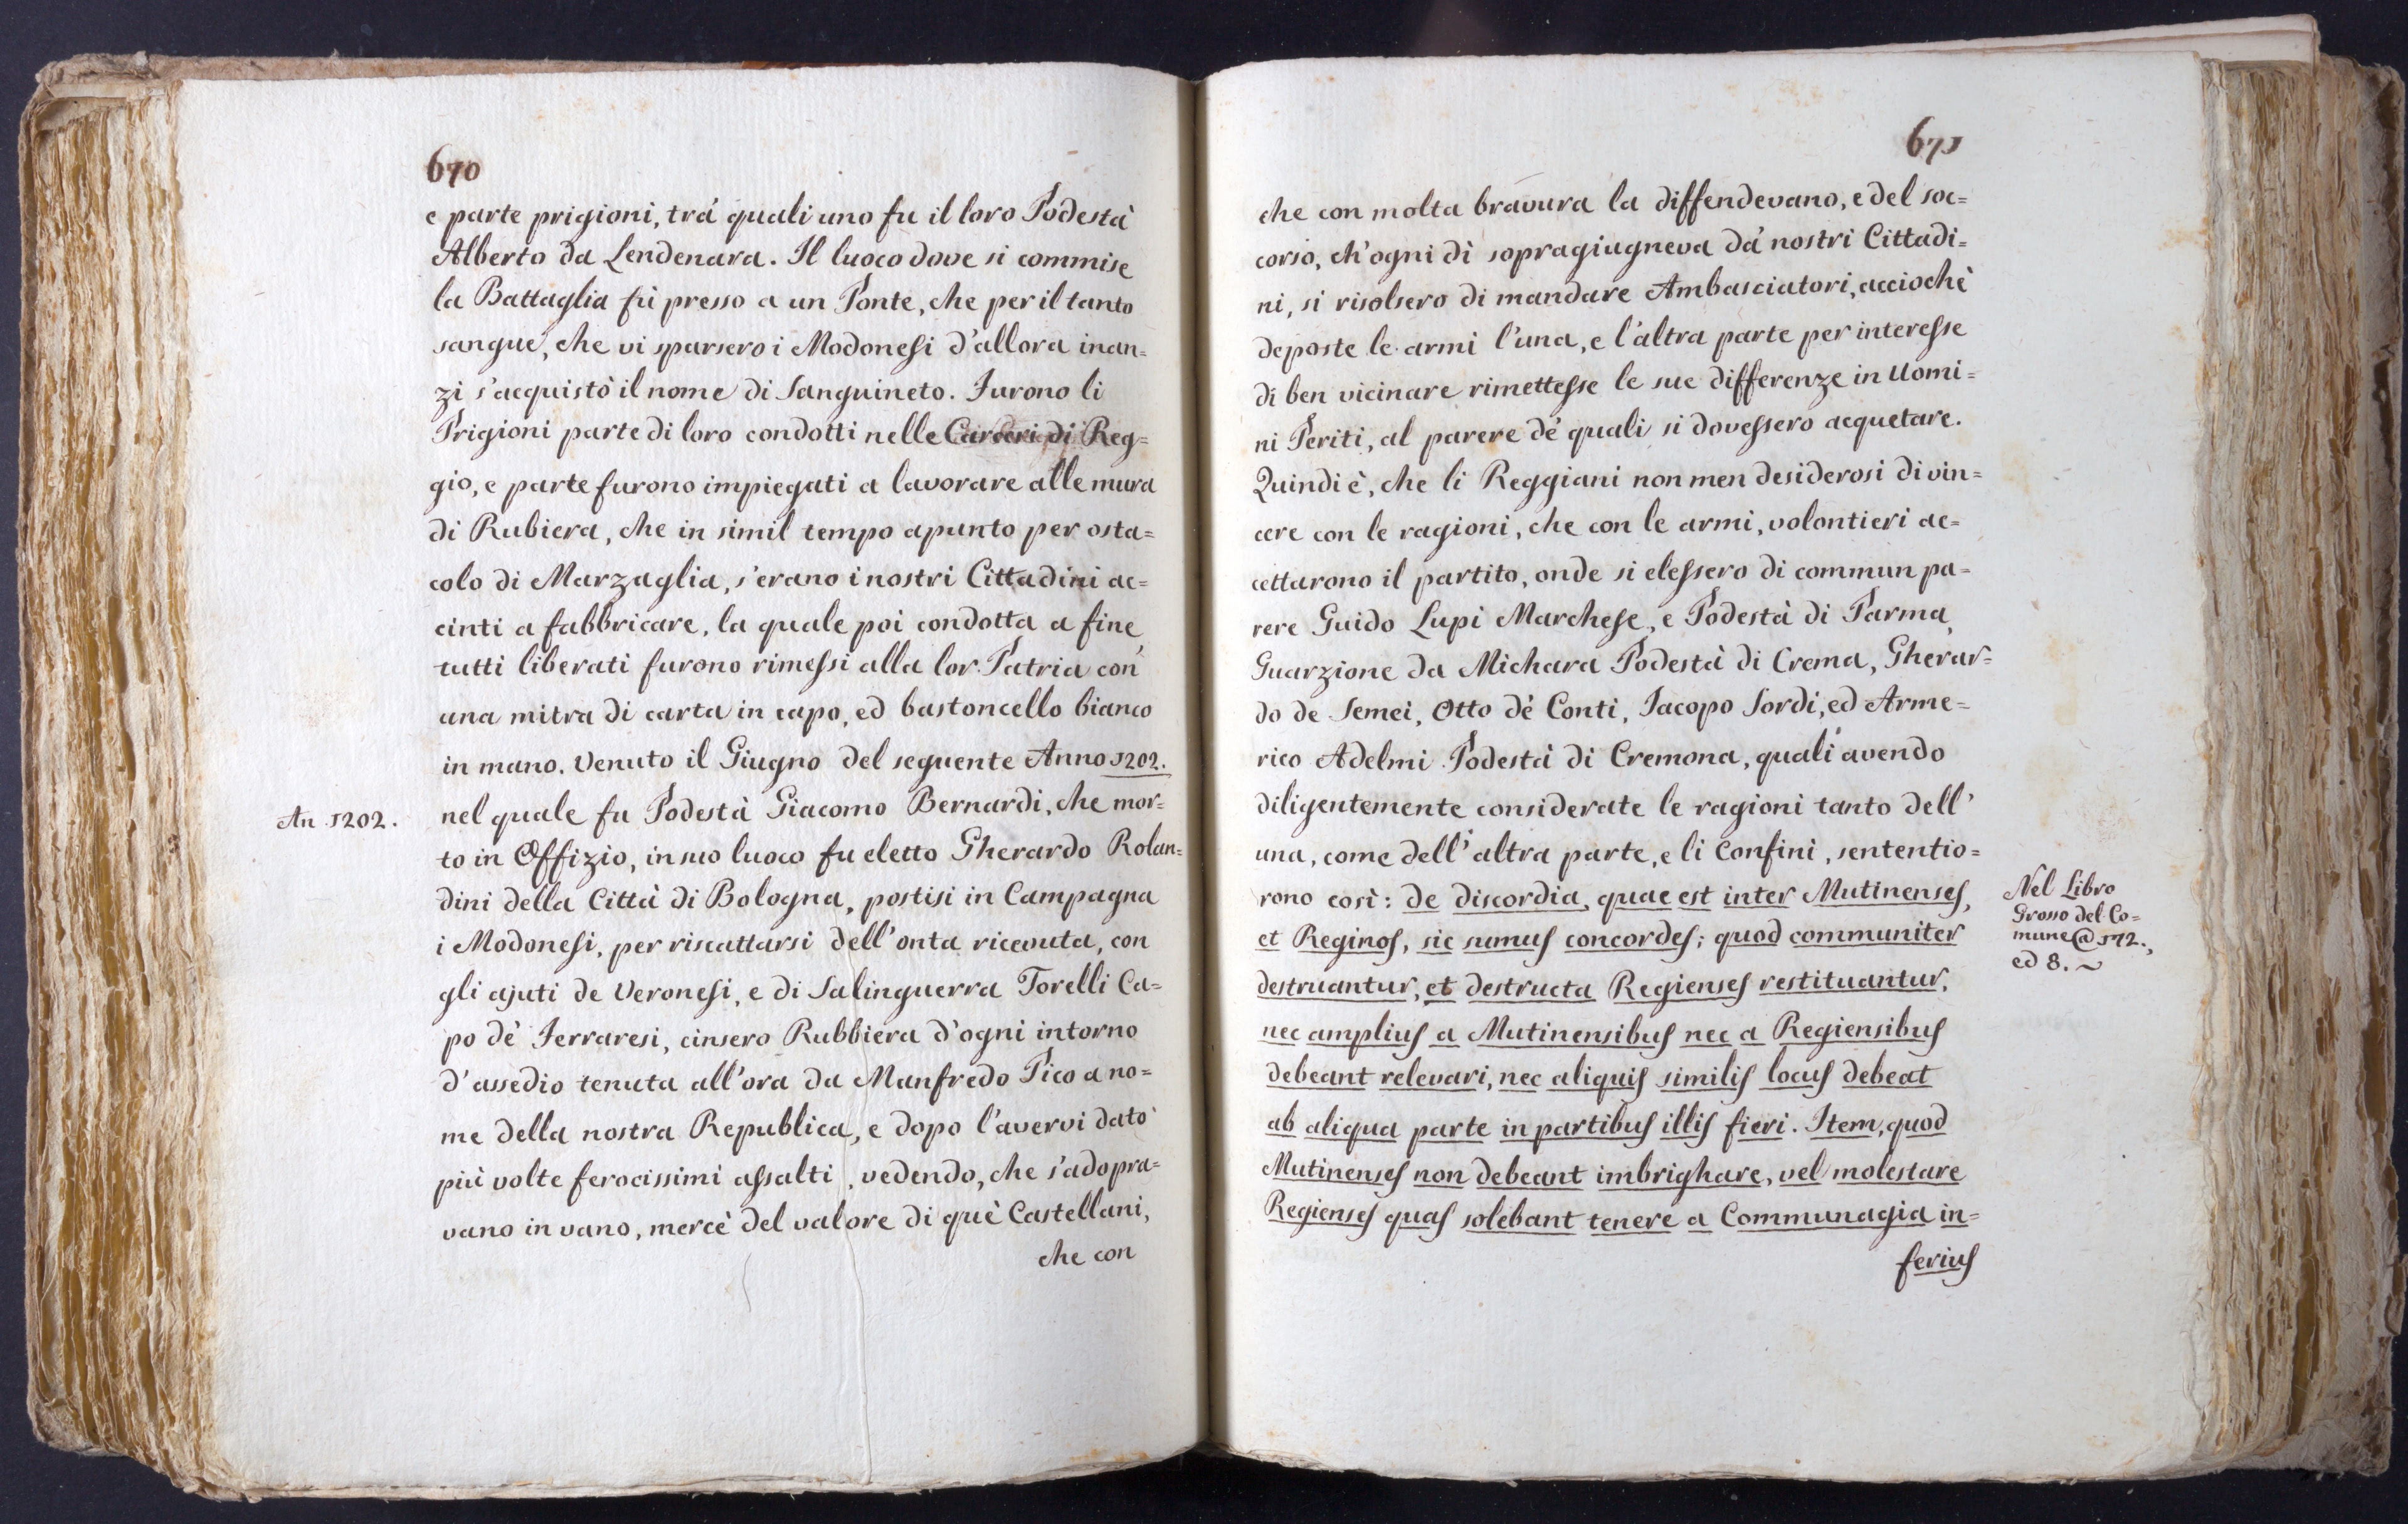 670
e parte prigioni, trá quali uno fu il loro Podestà
Alberto da Lendenara. Il luoco dove si commise
la Battaglia fù presso a un Ponte, che per il tanto
sangue, che vi sparsero i Modonesi d'allora inan=
zi s'acquistò il nome di Sanguineto. Furono li
Prigioni parte di loro condotti nelle Carceri di Reg=
gio, e parte furono impiegati a lavorare alle mura
di Rubiera, che in simil tempo apunto per osta=
colo di Marzaglia, s'erano i nostri Cittadini ac=
cinti a fabbricare, la quale poi condotta a fine
tutti liberati furono rimessi alla lor Patria con
una mitra di carta in capo, ed bastoncello bianco
in mano. Venuto il Giugno del seguente Anno 1202.
An 1202.
nel quale fu Podestà Giacomo Bernardi, che mor=
to in Offizio, in suo luoco fu eletto Gherardo Rolan=
dini della Città di Bologna, postisi in Campagna
i Modonesi, per riscattarsi dell'onta ricevuta, con
gli ajuti de Veronesi, e di Salinguerra Torelli Ca=
po dè Ferraresi, cinsero Rubbiera d'ogni intorno
d'assedio tenuta all'ora da Manfredo Pico a no=
me della nostra Republica, e dopo l'avervi dato
più volte ferocissimi assalti, vedendo, che s'adopra=
vano in vano, mercè del valore di què Castellani,
che con
671
che con molta bravura la diffendevano, e del soc=
corso, ch'ogni dì sopragiugneva dá nostri Cittadi=
ni, si risolsero di mandare Ambasciatori, acciochè
deposte le armi l'una, e l'altra parte per interesse
di ben vicinare rimettesse le sue differenze in Uomi=
ni Periti, al parere dé quali si dovessero acquetare.
Quindi è, che li Reggiani non men desiderosi di vin=
cere con le ragioni, che con le armi, volontieri ac=
cettarono il partito, onde si elessero di commun pa=
rere Guido Lupi Marchese, e Podestà di Parma,
Guarzione da Michara Podestà di Crema, Gherar=
do de Semei, Otto dé Conti, Iacopo Sordi, ed Arme=
rico Adelmi Podestà di Cremona, quali avendo
diligentemente considerate le ragioni tanto dell'
una, come dell'altra parte, e li Confini, sententio=
rono così: de discordia, quae est inter Mutinenses,
et Reginos, sic sumus concordes; quod communiter
destruantur, et destructa Regienses restituantur,
nec amplius a Mutinensibus nec a Regiensibus
debeant relevari, nec aliquis similis locus debeat
ab aliqua parte in partibus illis fieri. Item, quod
Mutinenses non debeant imbrighare, vel molestare
Regienses quas solebant tenere a Communagia in=
ferius
Nel Libro
Grosso del Co=
mune @ 172.,
ed 8. ~